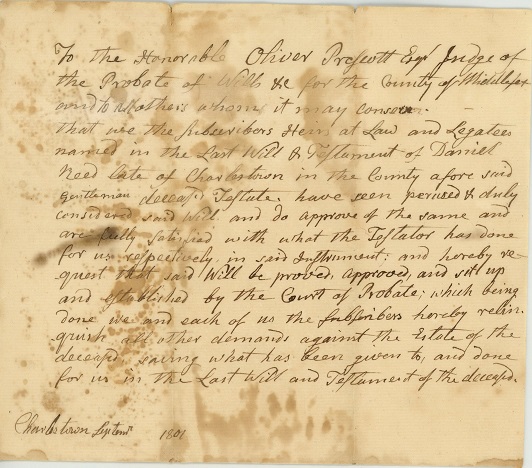 To the Honorable Oliver Prescott Esqr Judge of
the Probate of Wills &c for the County of Middlesex
and to all others whome it may consern.
that we the Subscribers Heir at Law and Legatees
named in the Last Will & Testament of Daniel
Reed late of Charlestown in the County afore said
Gentleman deceasd Testate. have seen perused & duly
considered said Will and do approve of the same and
are fully satisfied with what the Testator has done
for us respectively in said Instrument: and hereby re-
quest that said Will be proved, approved, and set up
and established by the Court of Probate; which being
done we and each of us the Subscribers hereby relin-
quish all other demands against the Estate of the
deceased saving what has been given to, and done
for us in the Last Will and Testament of the deceasd.
Charlestown Septemr 1801